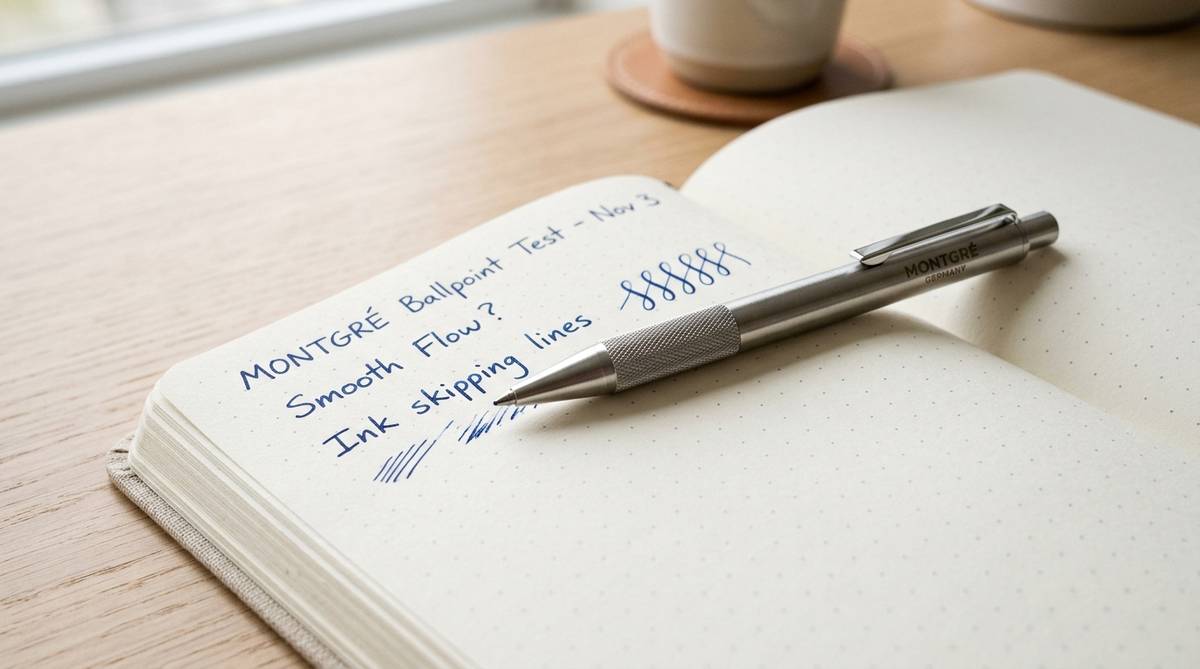 MONTGRÉ Ballpoint Test - Nov 3
Smooth Flow?
Ink skipping lines
MONTGRÉ
GERMANY